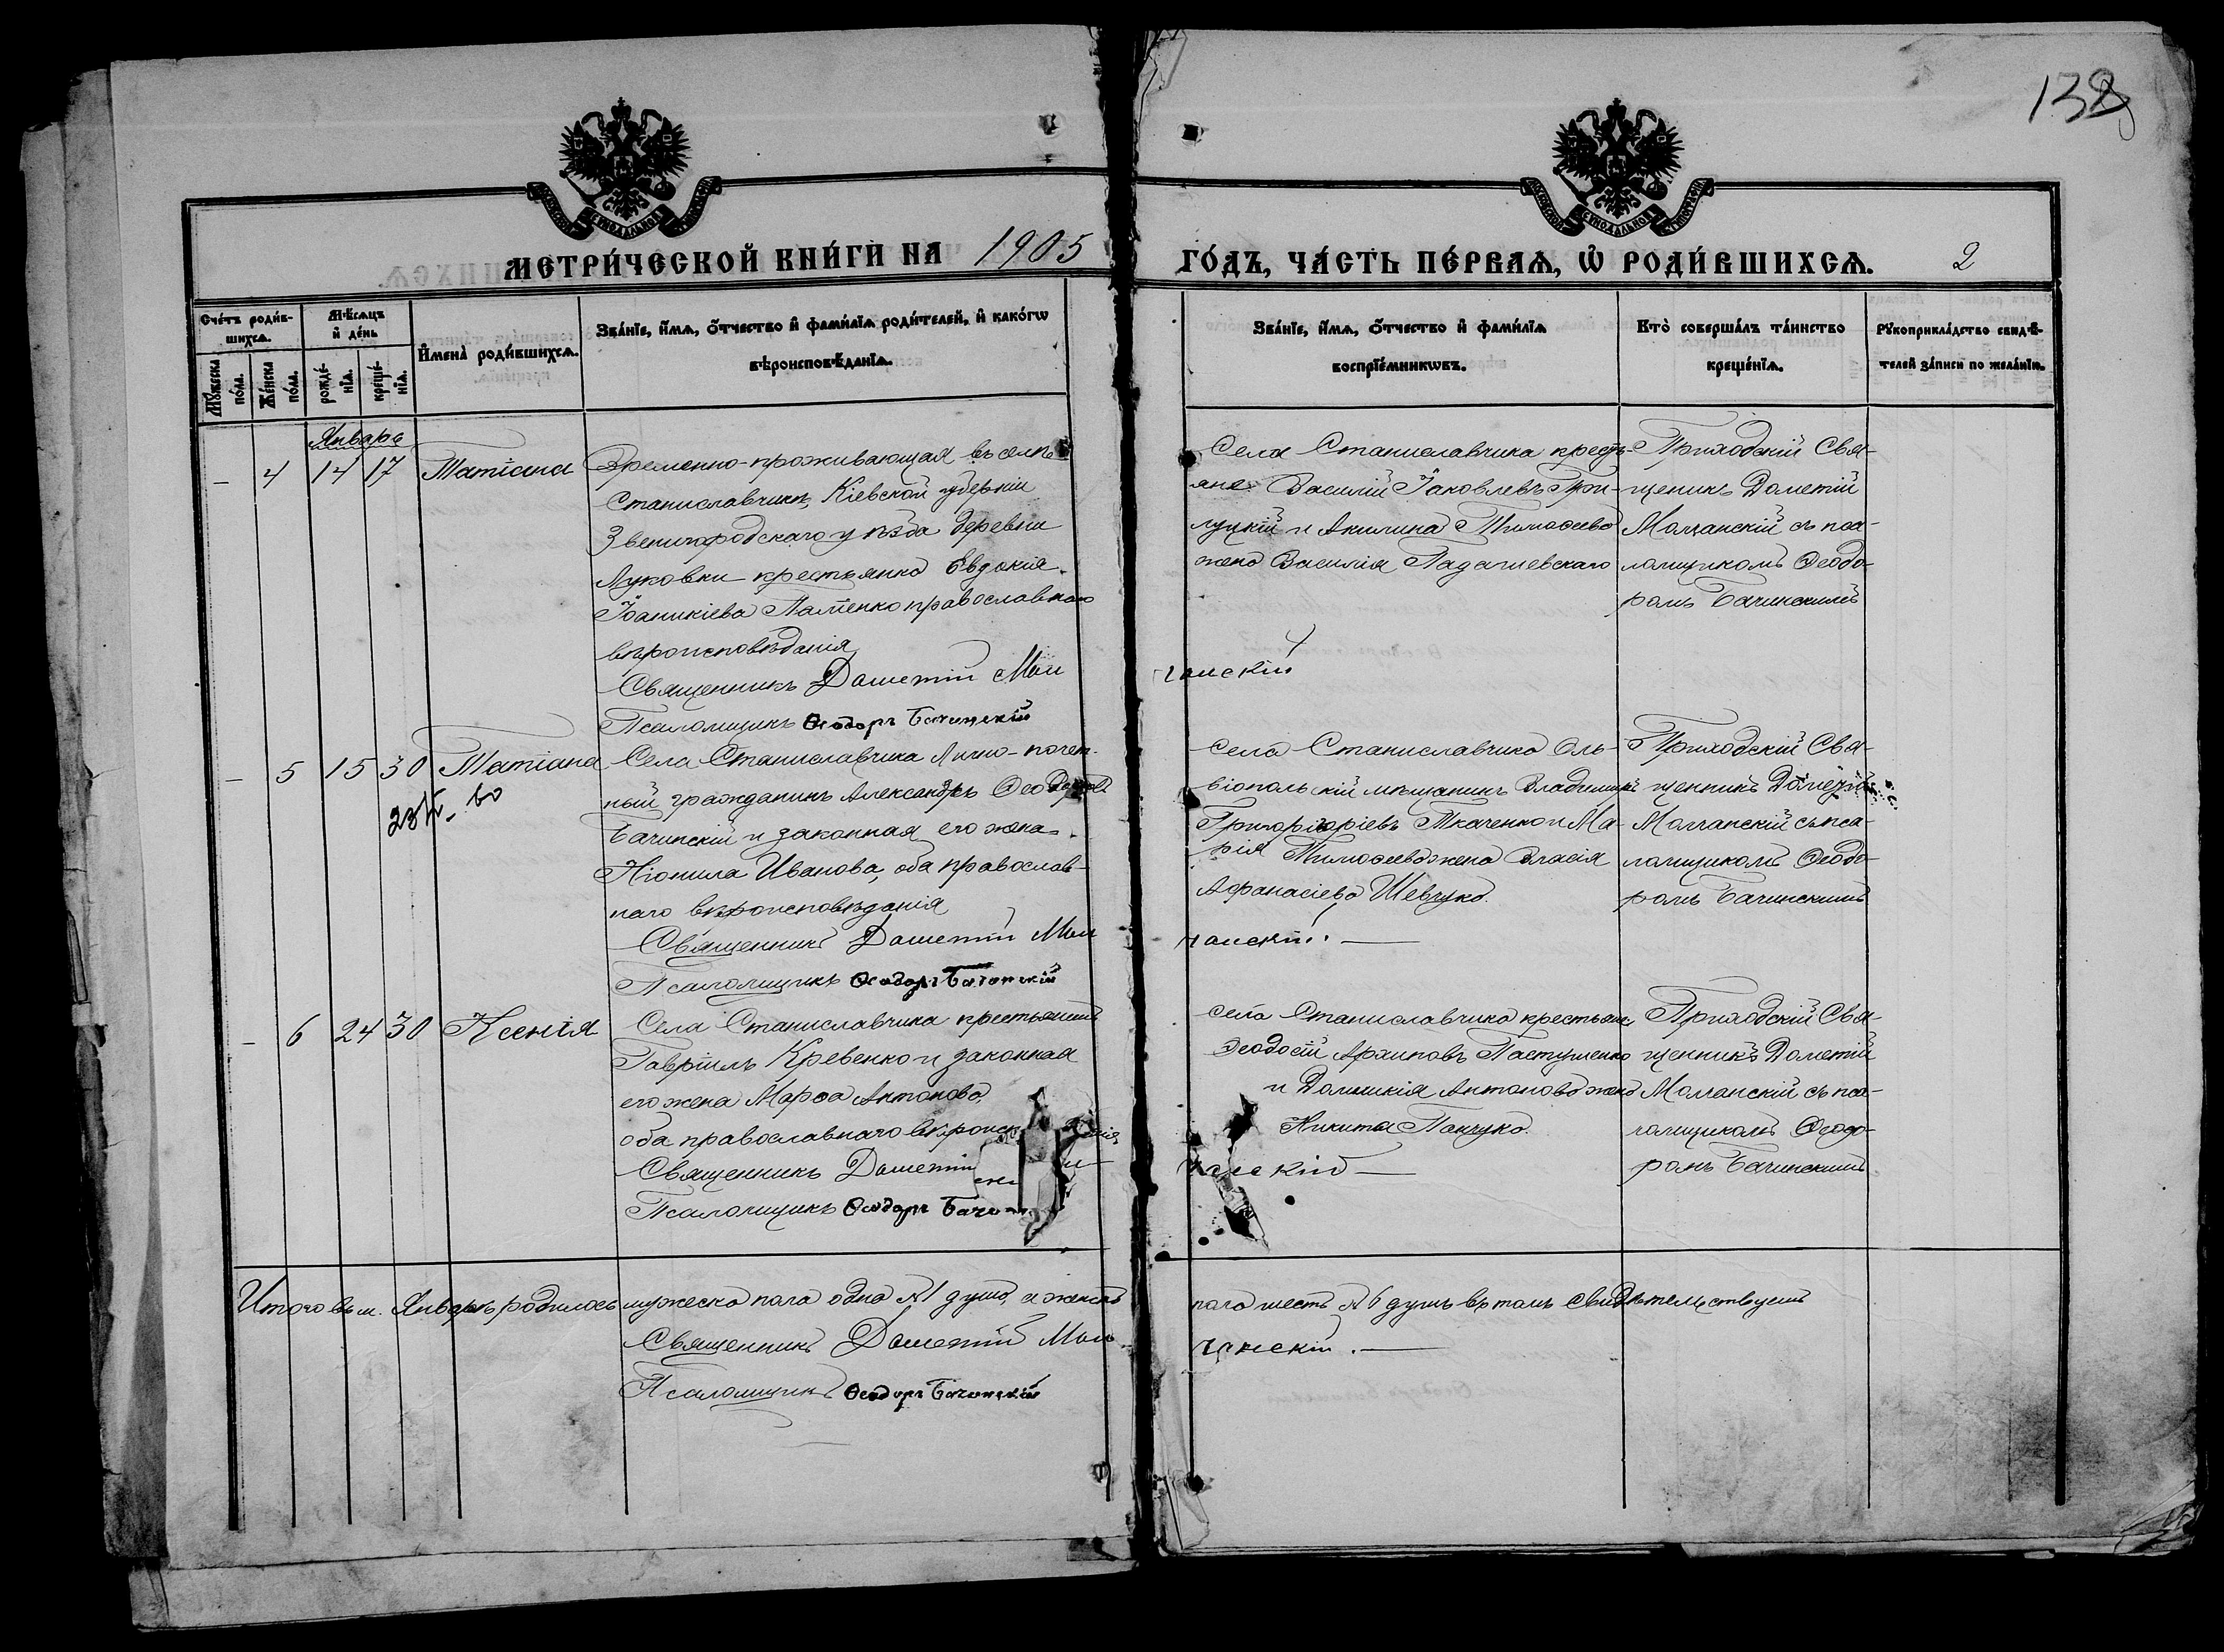 138
МЕТРИ́ЧЕСКОЙ КНИ́ГИ НА 1905
ГО́ДЪ, ЧА́СТЬ ПЕ́РВАѦ, Ѡ҆ РОДИ́ВШИХСѦ. 2
Сче́тъ роди́в-
шихсѧ.
Мꙋ́жеска по́ла.
Же́нска по́ла.
Мѣ́сѧцъ
и҆ де́нь
рожде́-
нїѧ.
креще́-
нїѧ.
И҆мена̀ роди́вшихсѧ.
Зва́нїе, и҆́мѧ, ѻ҆́тчество и҆ фами́лїѧ роди́телей, и҆ како́гѡ
вѣроисповѣ́данїѧ.
Зва́нїе, и҆́мѧ, ѻ҆́тчество и҆ фами́лїѧ
воспрїе́мникѡвъ.
Кто̀ соверша́лъ та́инство
креще́нїѧ.
Рꙋкоприкла́дство свидѣ́-
телей за́писи по жела́нїю.
Январь
- 4 14 17 Татіана
Временно-проживающая въ селѣ
Станиславчикѣ, Кіевской губерніи
Звенигородскаго уѣзда деревни
Луковки крестьянка Евдокія
Іоаникіева православнаго
вѣроисповѣданія
Священникъ Дометій Мол
Псаломщикъ Ѳеодоръ Бачинскій
Села Станиславчика крестья-
яне Василій Іаковлевъ При-
луцкій и Акилина Тимоѳеева
жена Василія
чанскій
Приходскій Свя-
щеникъ Дометій
Молчанскій съ пса-
ломщикомъ Ѳеодо-
ромъ Бачинскимъ
- 5 15 30 Татіана
Села Станиславчика Лично-почет-
ный гражданинъ Александръ Ѳеодоровъ
Бачинскій и законная его жена
Неонила Иванова, оба православ-
наго вѣроисповѣданія
Священникъ Дометій Мол
Псаломщикъ Ѳеодоръ Бачинскій
Села Станиславчика Оль-
віопольскій мѣщанинъ Владимиръ
Григоріоріевъ Ткаченко и Ма-
рія Тимоѳеева жена Власія
Афанасіева Шевчука.
чанскій.
Приходскій Свя-
щенникъ Дометій
Молчанскій съ пса-
ломщикомъ Ѳеодо-
ромъ Бачинскимъ
- 6 24 30 Ксенія
Села Станиславчика крестьянинъ
Гавріилъ Кревенко и законная
его жена Марѳа Антонова,
оба православнаго вѣроисп
Священникъ Дометій
Псаломщикъ Ѳеодоръ Бачин
села Станиславчика крестьяне
Ѳеодосій Архиповъ Пастушенко
и Домникія Антонова жена
Никита Панчука.
чанскій
Приходскій Свя-
щенникъ Дометій
Молчанскій съ пса-
ломщикомъ Ѳеодо-
ромъ Бачинскимъ
Итого въ м. Январѣ родилось мужеска пола одна № 1 душа, а женска
пола шесть № 6 душъ въ томъ свидѣтельствуемъ
Священникъ Дометій Мол
чанскій.
Псаломщикъ Ѳеодоръ Бачинскій